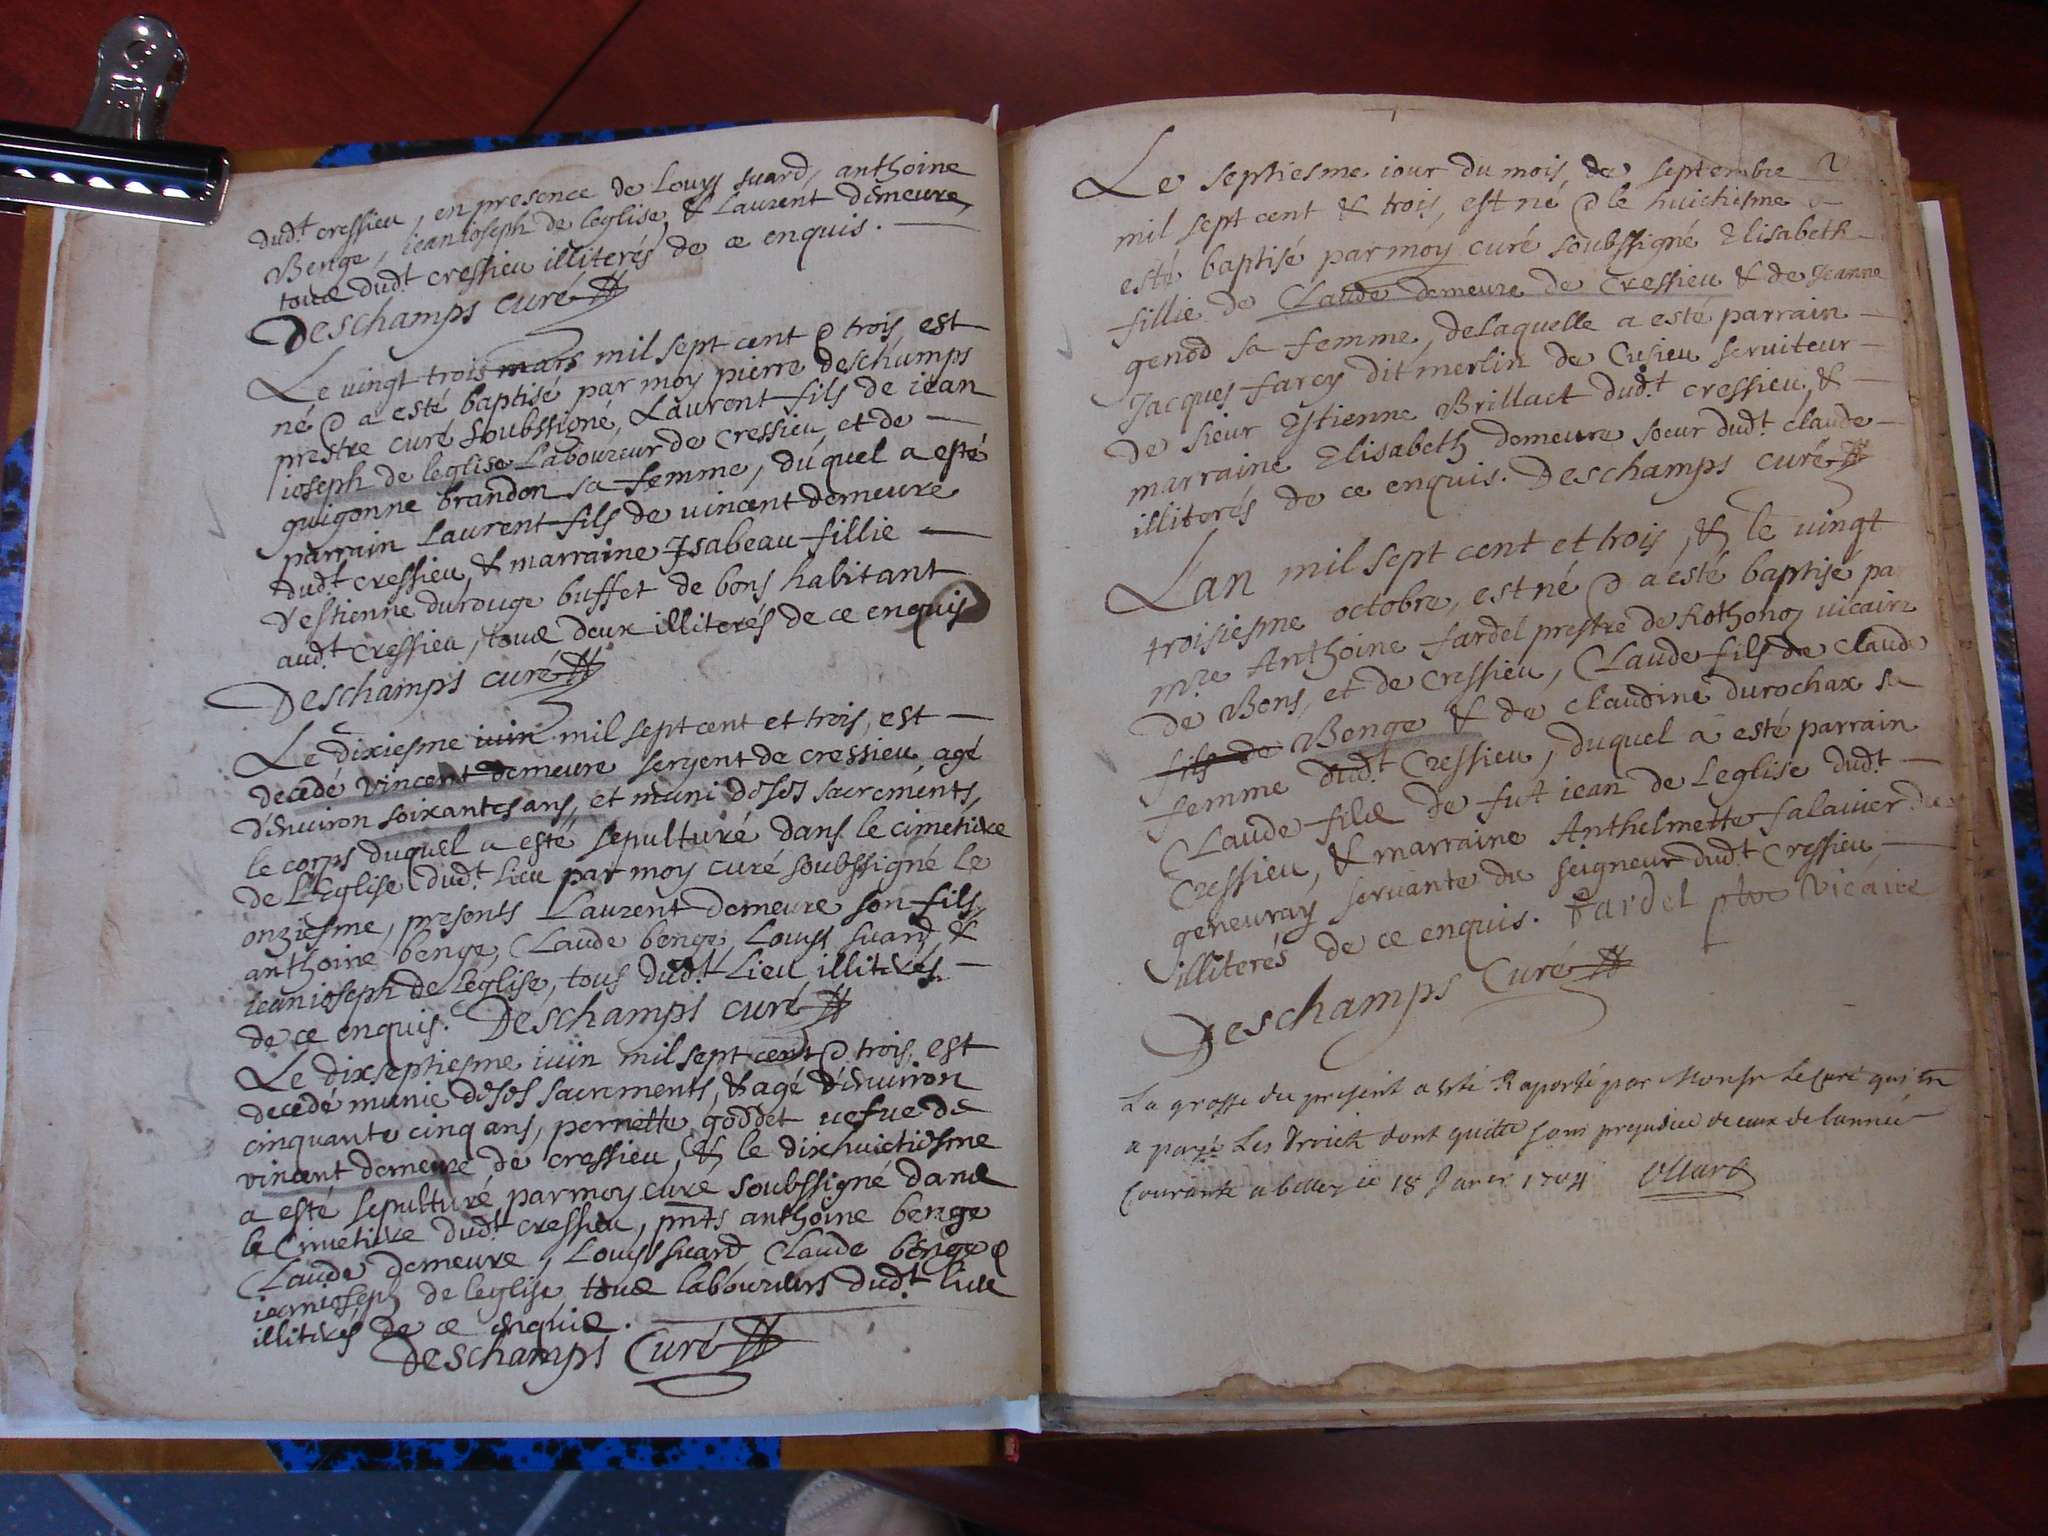 dud.t cressieu, en presence de Louys suard, anthoine
Benge, ieanioseph de leglise, & Laurent demeure,
tous dud.t cressieu illiterés de ce enquis.
Deschamps curé
Le vingt trois mars mil sept cent & trois, est
né & a esté baptisé par moy pierre deschamps
prestre curé soubssigné, Laurent fils de iean
ioseph de leglise Laboureur de Cressieu, et de
guigonne brandon sa femme, duquel a esté
parrain Laurent fils de vincent demeure
dud.t cressieu, & marraine Isabeau fillie
d'estienne durouge buffet de bons habitant
aud.t Cressieu, tous deux illiterés de ce enquis
Deschamps curé
Le dixiesme iuin mil sept cent et trois, est
decedé vincent demeure sergent de cressieu, agé
d'environ soixantes ans, et muni de ses sacrements,
le corps duquel a esté sepulturé dans le cimetiere
de L'Eglise dud.t Lieu par moy curé soubssigné le
onziesme, presents Laurent demeure son fils,
anthoine benge, Claude benge, Louys suard, &
ieanioseph de leglise, tous dud.t Lieu illiterés
de ce enquis. Deschamps curé
Le dixseptiesme iuin mil sept cent & trois, est
decedé munie de ses sacrements, & agé d'environ
cinquante cinq ans, pernette goddet vefve de
vincent demeure de cressieu, & le dixhuictiesme
a esté sepulturé par moy curé soubssigné dans
le Cimetiere dud.t cressieu, pnts anthoine benge
Claude demeure, Louys suard, Claude benge &
ieanioseph de leglise tous laboureurs dud.t lieu
illiterés de ce enquis.
Deschamps Curé
Le septiesme iour du mois de septembre 2
mil sept cent & trois, est né & le huictiesme a
esté baptisé par moy curé soubssigné Elisabeth
fillie de Claude demeure de Cressieu & de Jeanne
genod sa femme, de laquelle a esté parrain
Jacques farcy dit merlin de Cusieu serviteur
de sieur Estienne Brillact dud.t cressieu, &
marraine Elisabeth demeure soeur dud.t claude
illiterés de ce enquis. Deschamps curé
Lan mil sept cent et trois, & le vingt
troisiesme octobre, est né & a esté baptisé pa
mre Anthoine fardel prestre de Rothonoz vicaire
de Bons, et de Cressieu, Claude fils de Claude
fils de Benge & de Claudine durochax sa
femme dud.t Cressieu, duquel a esté parrain
Claude fils de fut iean de Leglise dud.t
Cressieu, & marraine Anthelmette salavier du
genevray servante du seigneur dud.t Cressieu,
illiterés de ce enquis. fardel ptre vicaire
Deschamps Curé
La grosse du present a esté Raporté par Monsr Le Curé qui en
a payé Les Droits dont quitte sans prejudice de ceux de lannée
Courante a belley ce 18 Janer 1704